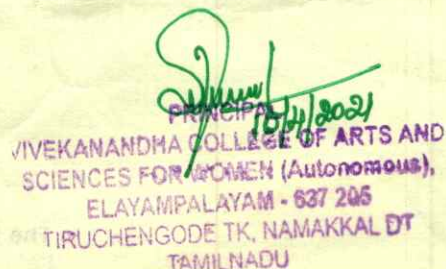 PRINCIPAL
15/4/2021
VIVEKANANDHA COLLEGE OF ARTS AND
SCIENCES FOR WOMEN (Autonomous),
ELAYAMPALAYAM - 637 205
TIRUCHENGODE TK, NAMAKKAL DT
TAMILNADU